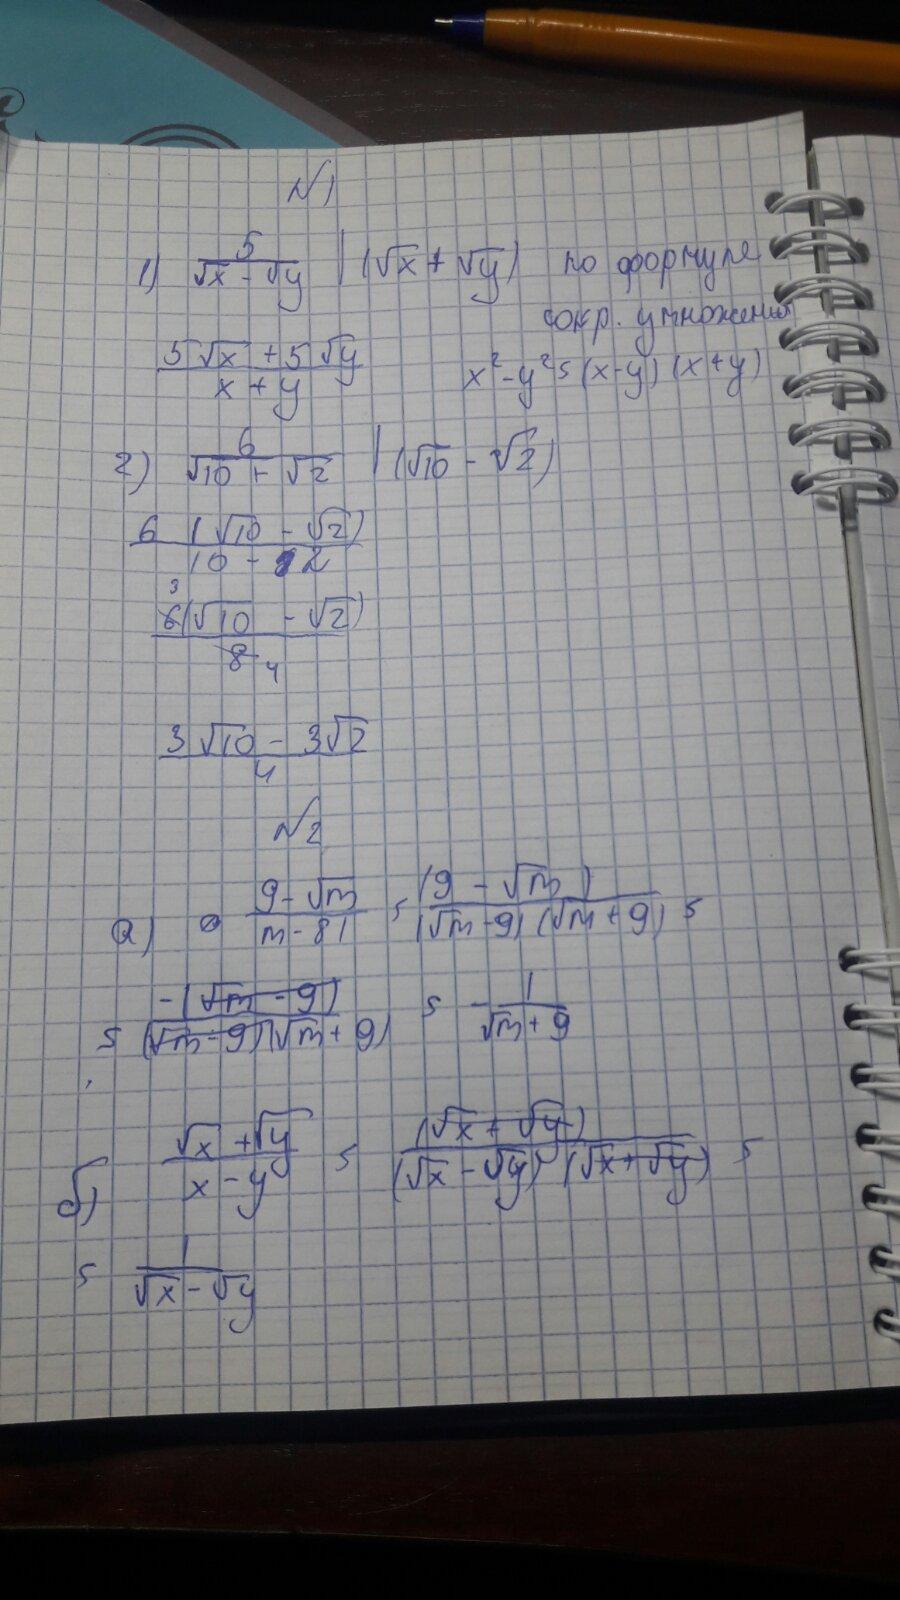 №1
1) 5/(√x - √y) | (√x + √y) по формуле
сокр. умножения
(5√x + 5√y)/(x + y) x² - y² = (x-y) (x+y)
2) 6/(√10 + √2) | (√10 - √2)
6 (√10 - √2)/(10 - 2)
3
6(√10 - √2)/8 4
(3√10 - 3√2)/4
№2
а) (9 - √m)/(m - 81) = (9 - √m)/((√m - 9) (√m + 9)) =
= -(√m - 9)/((√m - 9)(√m + 9)) = - 1/(√m + 9)
б) (√x + √y)/(x - y) = (√x + √y)/((√x - √y) (√x + √y)) =
= 1/(√x - √y)